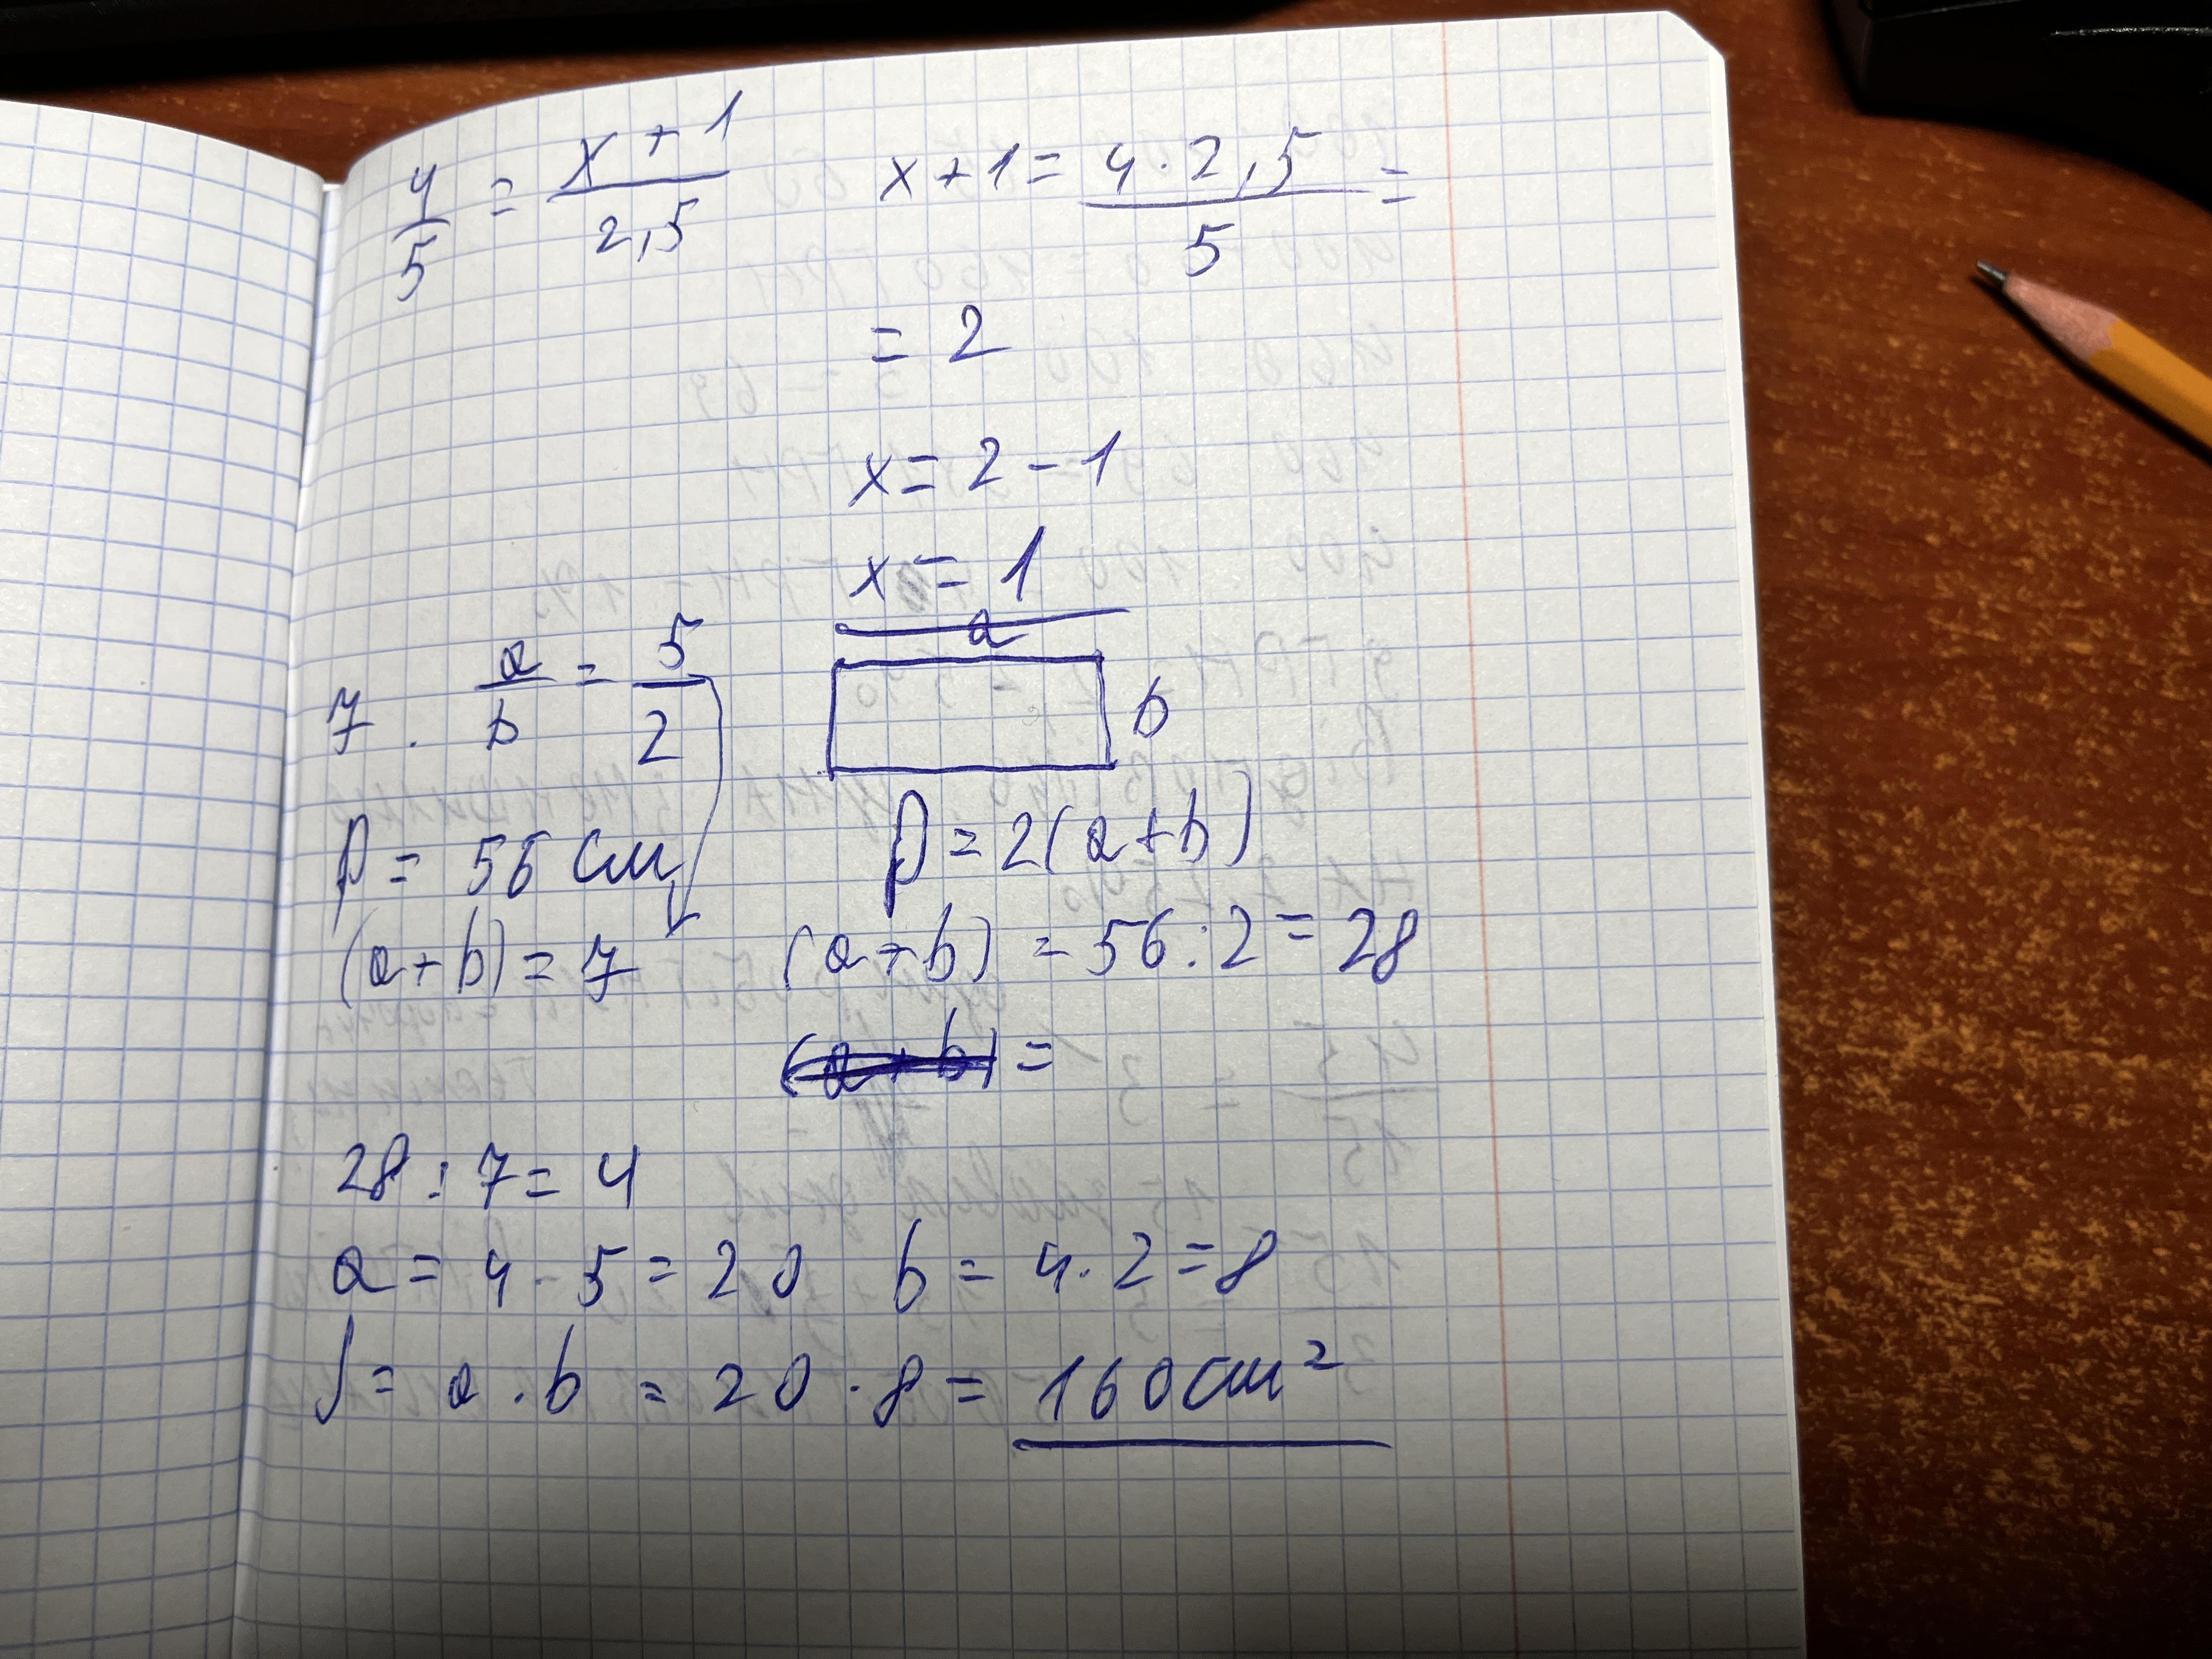 4/5 = (x+1)/2,5    x+1 = (4·2,5)/5 =
= 2
x = 2 - 1
x = 1
a
7. a/b = 5/2    b
P = 56 см    P = 2(a+b)
(a+b) = 7    (a+b) = 56:2 = 28
(a+b) =
28 : 7 = 4
a = 4 · 5 = 20    b = 4 · 2 = 8
S = a · b = 20 · 8 = 160 см²